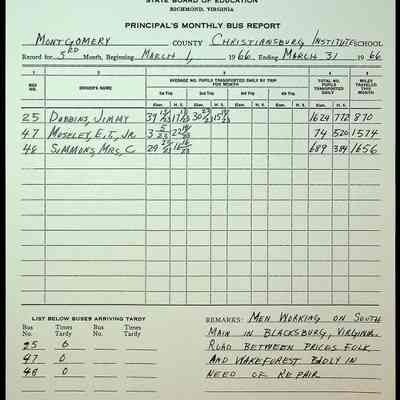 STATE BOARD OF EDUCATION
RICHMOND, VIRGINIA
PRINCIPAL'S MONTHLY BUS REPORT
MONTGOMERY COUNTY CHRISTIANSBURG INSTITUTE SCHOOL
Record for 5RD Month, Beginning MARCH 1, 1966, Ending MARCH 31 1966
1 2 3 4 5
BUS NO. DRIVER'S NAME AVERAGE NO. PUPILS TRANSPORTED DAILY BY TRIP FOR MONTH TOTAL NO. PUPILS TRANSPORTED DAILY MILES TRAVELED THIS MONTH
1st Trip 2nd Trip 3rd Trip 4th Trip
Elem. H. S. Elem. H. S. Elem. H. S. Elem. H. S. Elem. H. S.
25 DOBBINS, JIMMY 1624 772 870
47 MOSELEY, E.T., JR. 74 520 1574
48 SIMMONS, MRS. C 689 384 1656
LIST BELOW BUSES ARRIVING TARDY
Bus No. Times Tardy Bus No. Times Tardy
25 0
47 0
48 0
REMARKS: MEN WORKING ON SOUTH
MAIN IN BLACKSBURG, VIRGINIA.
ROAD BETWEEN PRICES FOLK
AND WAKEFOREST BADLY IN
NEED OF REPAIR